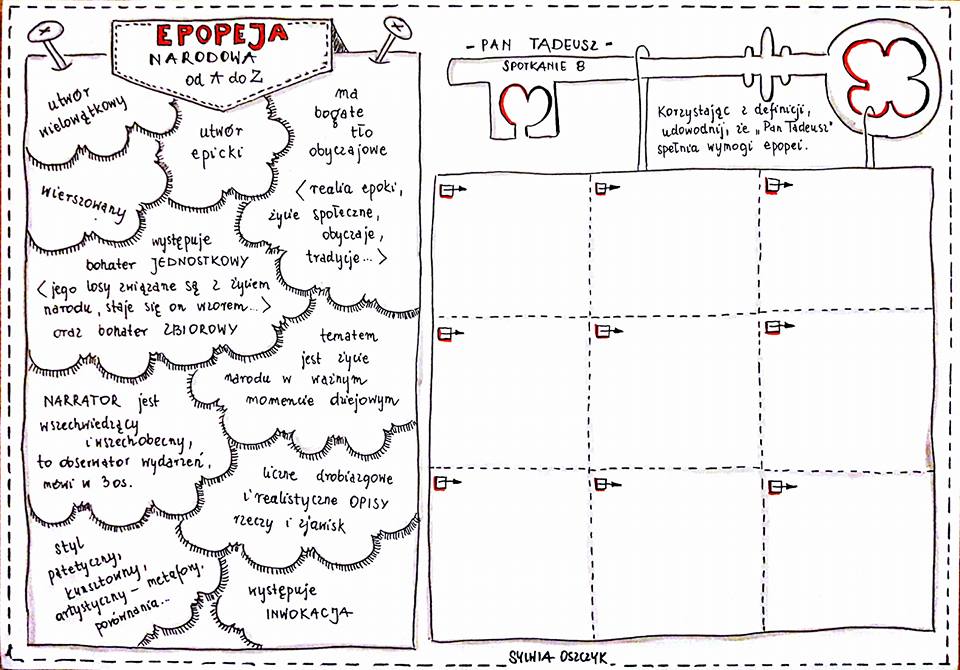 EPOPEJA
NARODOWA
od A do Z
utwór
wielowątkowy
utwór
epicki
ma
bogate
tło
obyczajowe
<realia epoki,
życie społeczne,
obyczaje,
tradycje...>
wierszowany
występuje
bohater JEDNOSTKOWY
<jego losy związane są z życiem
narodu, staje się on wzorem...>
oraz bohater ZBIOROWY
tematem
jest życie
narodu w ważnym
momencie dziejowym
NARRATOR jest
wszechwiedzący
i wszechobecny,
to obserwator wydarzeń,
mówi w 3 os.
liczne drobiazgowe
i realistyczne OPISY
rzeczy i zjawisk
styl
patetyczny,
kunsztowny,
artystyczny - metafory,
porównania...
występuje
INWOKACJA
- PAN TADEUSZ -
SPOTKANIE 8
Korzystając z definicji,
udowodnij, że „Pan Tadeusz"
spełnia wymogi epopei.
SYLWIA OSZCZYK